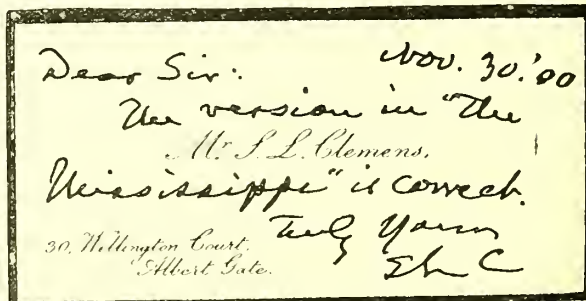 Nov. 30. '00
Dear Sir:
The version in "The
Mr S. L. Clemens.
Mississippi" is correct.
Truly Yours
30, Wellington Court.
Albert Gate.
SLC